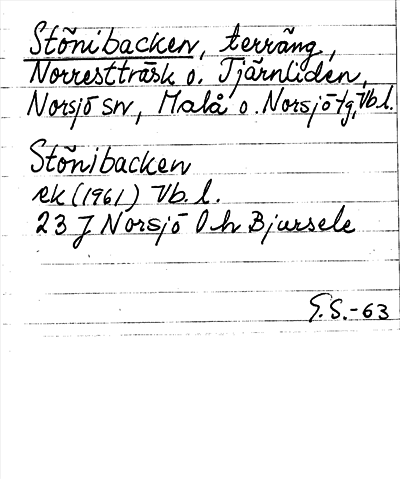 Stönibacken, terräng,
Norrestträsk o. Tjärnliden,
Norsjö sn, Malå o. Norsjö tg, Vb.l.
Stönibacken
ek (1961) Vb. l.
23 J Norsjö 0 h Bjursele
G.S.-63